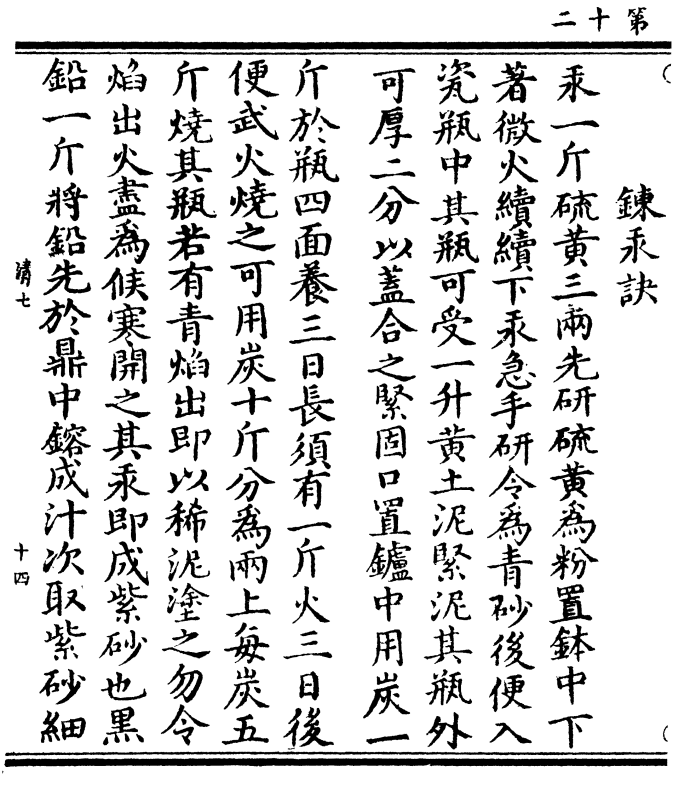 第十二
鍊汞訣
汞一斤硫黃三兩先研硫黃為粉置鉢中下
著微火續續下汞急手研令為青砂後便入
瓷瓶中其瓶可受一升黃土泥緊泥其瓶外
可厚二分以蓋合之緊固口置鑪中用炭一
斤於瓶四面養三日長須有一斤火三日後
便武火燒之可用炭十斤分為兩上每炭五
斤燒其瓶若有青焰出即以稀泥塗之勿令
焰出火盡為候寒開之其汞即成紫砂也黑
鉛一斤將鉛先於鼎中鎔成汁次取紫砂細
清七
十四